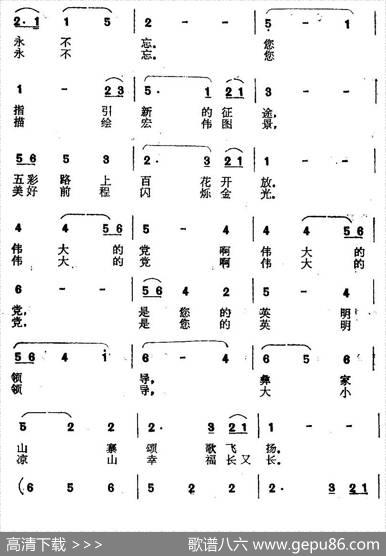 2· 1 1 5 2 - - 5 - 1
永 不 忘。 您
永 不 忘。 您
1 - 2 3 5· 1 2 1 3 - -
指 引 新 的 征 途，
描 绘 宏 伟 图 景，
5 6 5 3 2· 3 2 1 1 - -
五彩 路 上 百 花 开 放。
美好 前 程 闪 烁 金 光。
4 4 5 6 5 - 4 4 4 5 6
伟 大 的 党 啊 伟 大 的
伟 大 的 党 啊 伟 大 的
6 - - 5 6 4 2 5 - 4
党， 是 您 的 英 明
党， 是 您 的 英 明
5 6 4 i 6 - 4 6 5 6
领 导， 彝 家
领 导， 大 小
5 2 2 2· 3 2 1 1 - -
山 寨 颂 歌 飞 扬。
凉 山 幸 福 长 又 长。
( 6 5 6 5 2 2 2· 3 2 1
高清下载 >>> 歌谱八六 www.gepu86.com